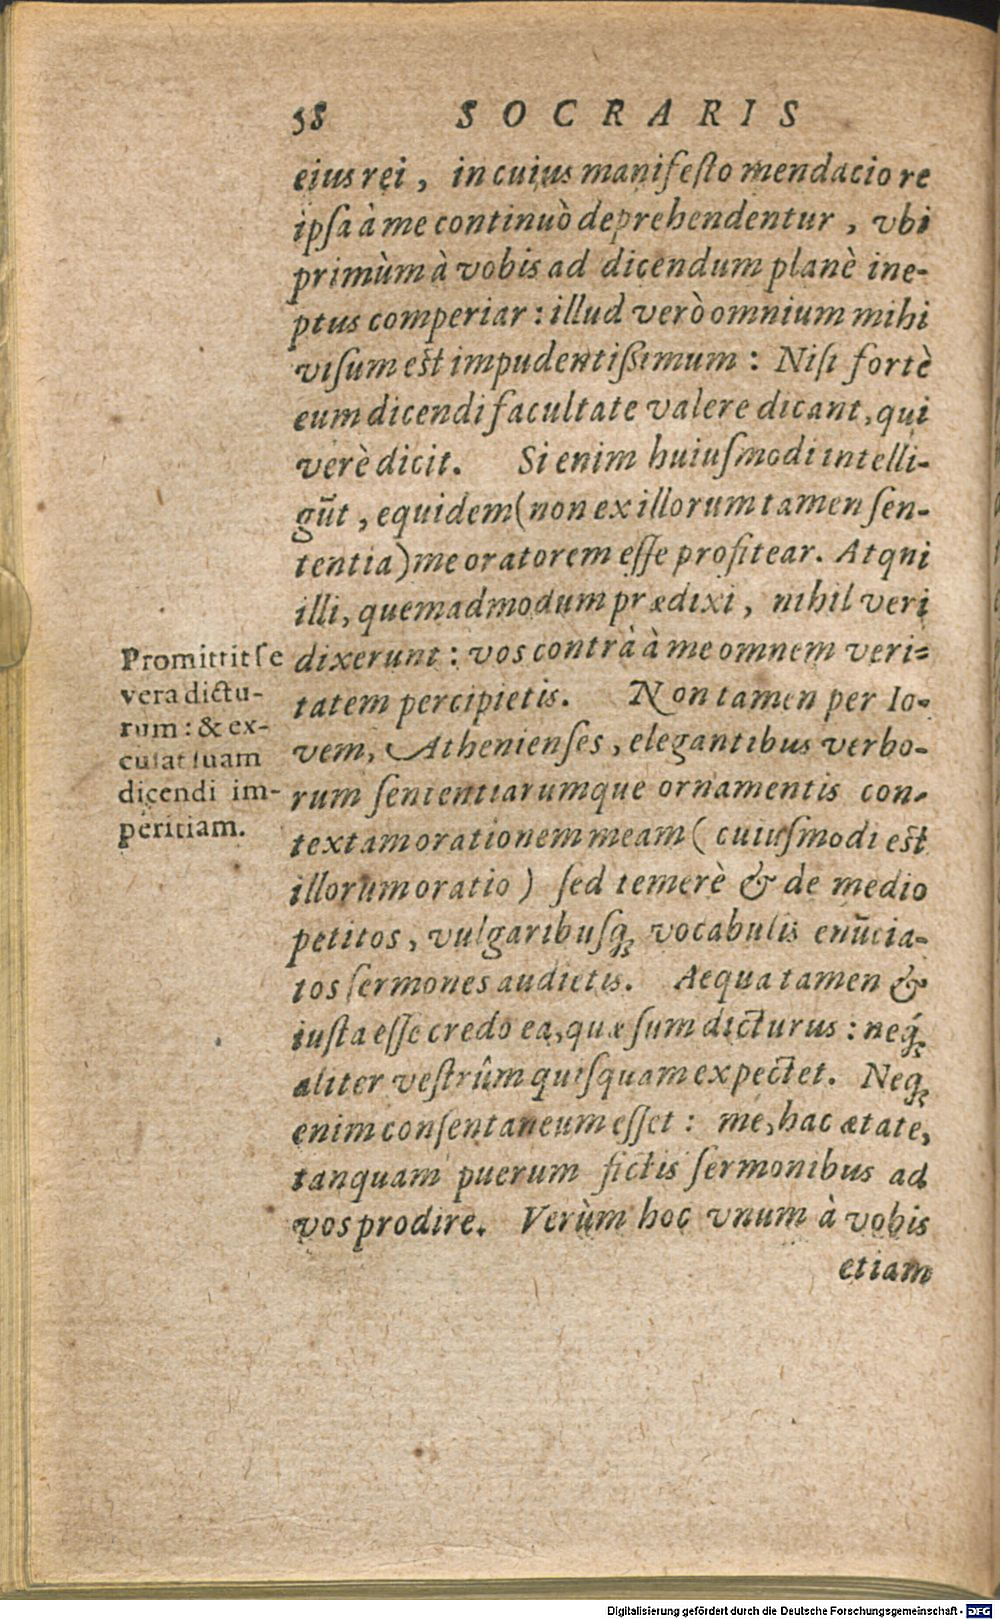 58 SOCRARIS
eius rei, in cuius manifesto mendacio re
ipsa à me continuò deprehendentur, vbi
primùm à vobis ad dicendum planè ine-
ptus comperiar: illud verò omnium mihi
visum est impudentissimum: Nisi fortè
eum dicendi facultate valere dicant, qui
verè dicit. Si enim huiusmodi intelli-
gūt, equidem (non ex illorum tamen sen-
tentia) me oratorem esse profitear. Atqni
illi, quemadmodum prædixi, nihil veri
dixerunt: vos contrà à me omnem veri-
tatem percipietis. Non tamen per Io-
vem, Athenienses, elegantibus verbo-
rum sententiarumque ornamentis con-
textam orationem meam (cuiusmodi est
illorum oratio) sed temerè & de medio
petitos, vulgaribusq́; vocabulis enūcia-
tos sermones audietis. Aequa tamen &
iusta esse credo ea, quæ sum dicturus: neq́;
aliter vestrûm quisquam expectet. Neq;
enim consentaneum esset: me, hac ætate,
tanquam puerum fictis sermonibus ad
vos prodire. Verùm hoc vnum à vobis
etiam
Promittit se
vera dictu-
rum: & ex-
cusat suam
dicendi im-
peritiam.
Digitalisierung gefördert durch die Deutsche Forschungsgemeinschaft - DFG